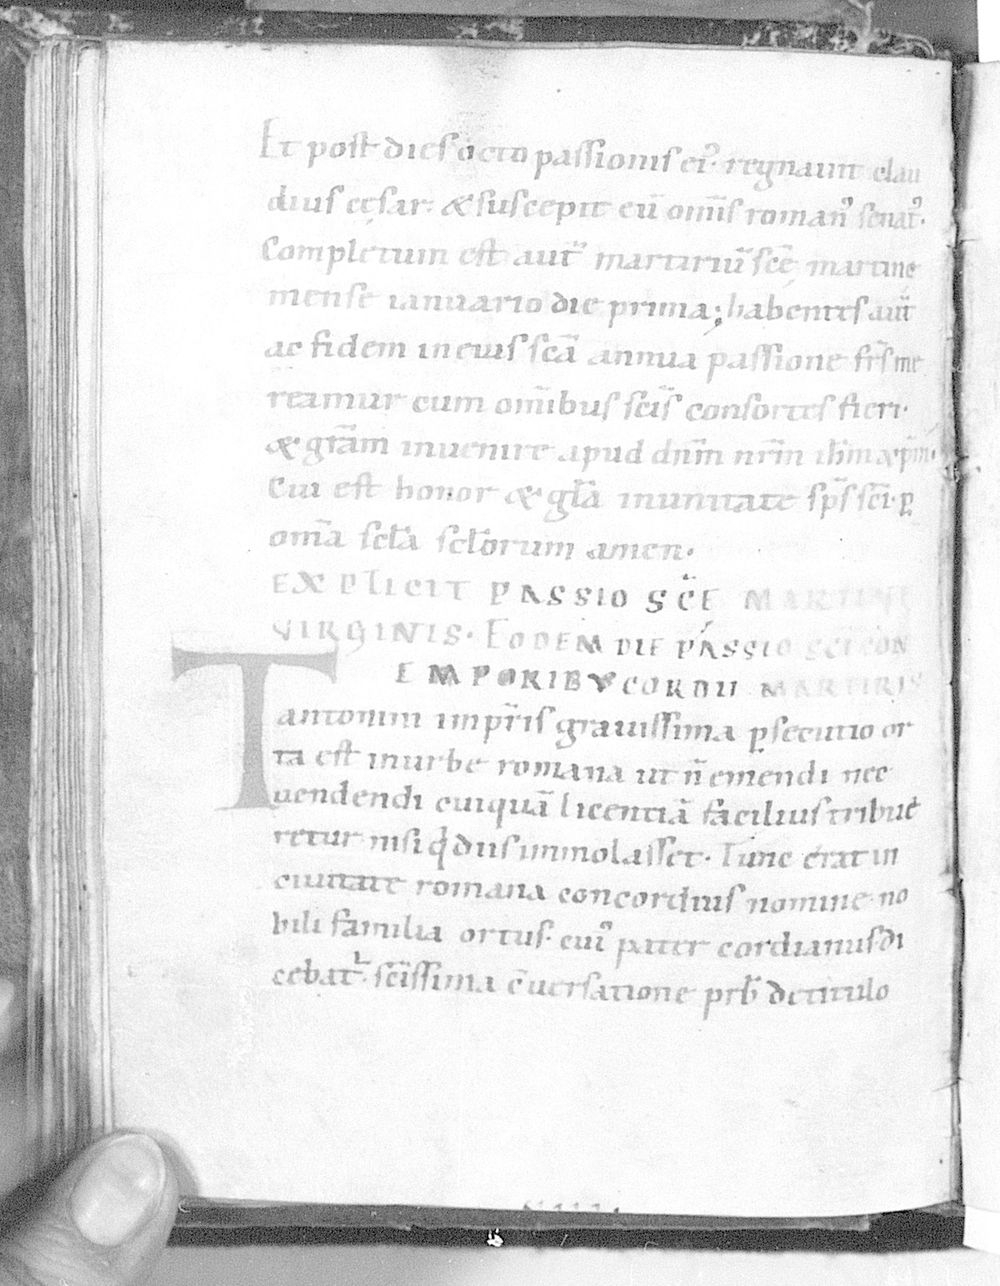 Et post dies octo passionis ei᾽· regnauit clau
dius cęsar· & suscepit eū om̄is roman᾽ senat᾽·
Completum est aut̄ martiriū scē martine
mense ianuario die prima; habentes aut̄
ac fidem in eius scā annua passione frs̄ me
reamur cum om̄ibus scīs consortes fieri·
& grām inuenire apud dnm̄ nrm̄ ihm̄ xpm̄·
Cui est honor & glā in unitate sps̄ scī· ꝑ
om̄a sclā sclōrum amen·
EXPLICIT PASSIO SCĒ MARTINE
VIRGINIS· EODEM DIE PASSIO SCĪ CON
CORDII MARTIRIS
TEMPORIBUS
antonini impr̄is grauissima ꝑsecutio or
ta est in urbe romana ut n̄ emendi nec
uendendi cuiquā licentiā facilius tribue
retur nisi q̄ diis immolasset· Tunc erat in
ciuitate romana concordius nomine no
bili familia ortus· cui᾽ pater cordianus di
cebat᾽· scīssima c̄uersatione prb̄ de titulo